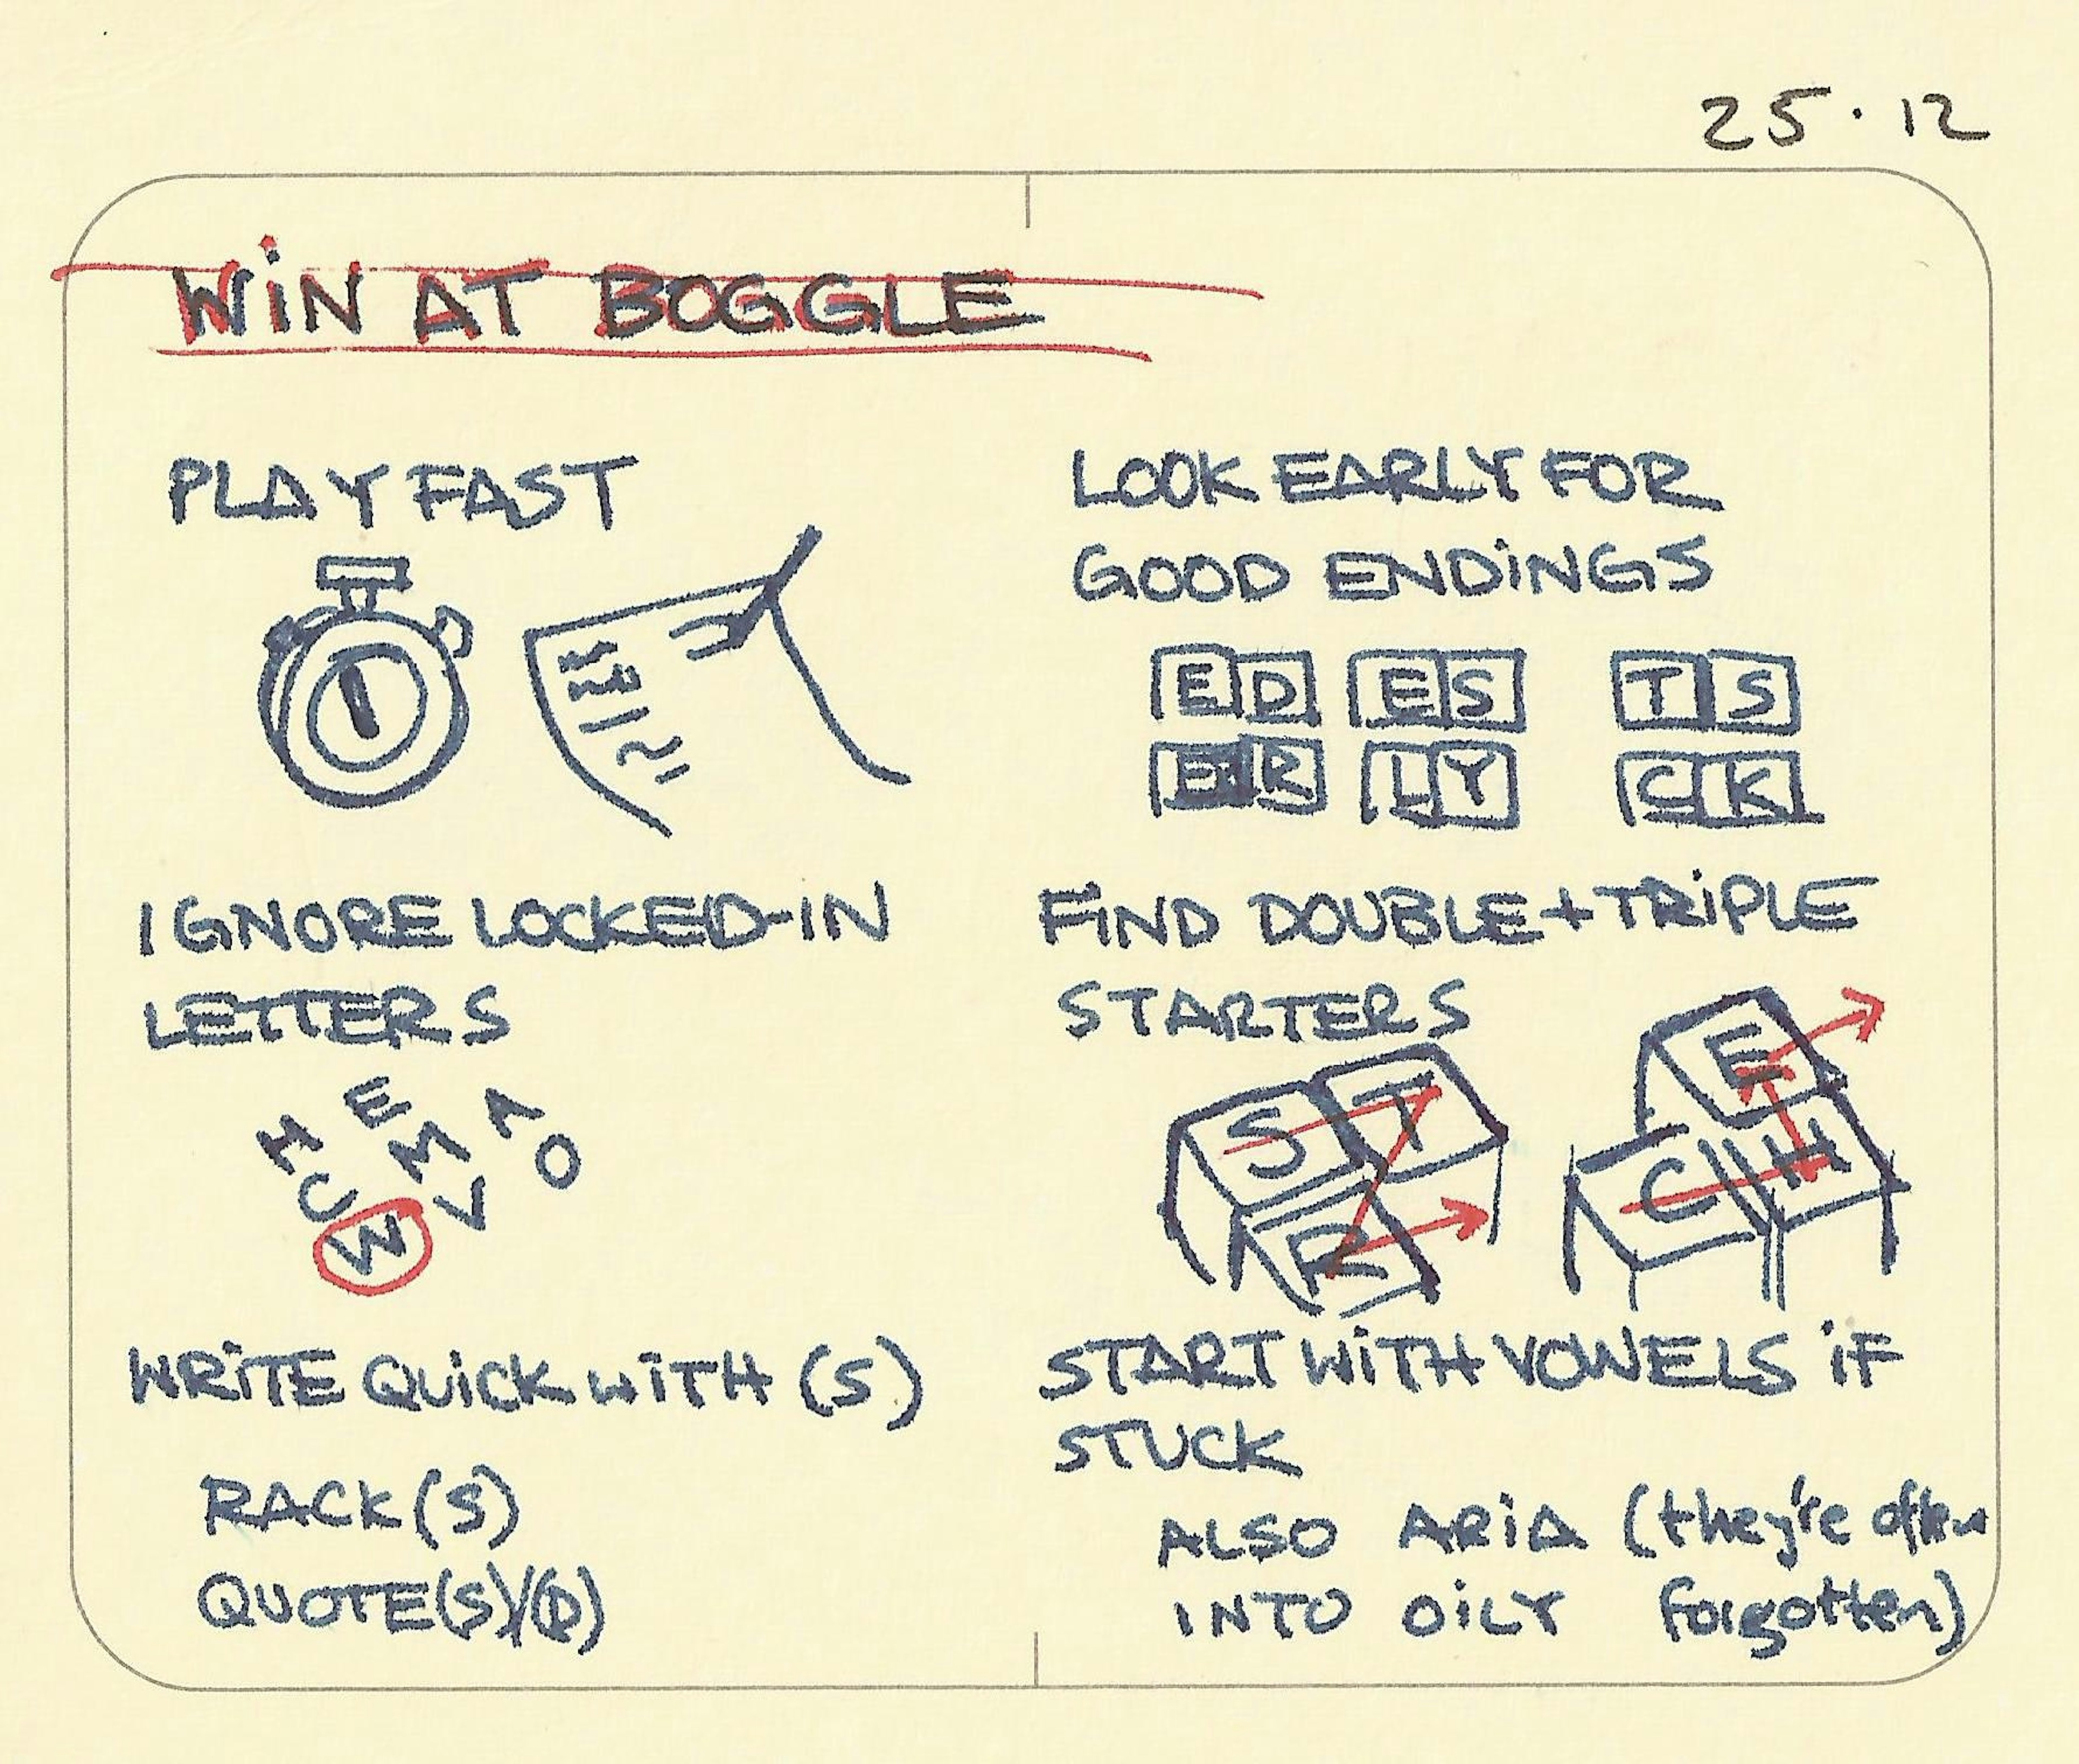 25.12
WIN AT BOGGLE
PLAY FAST
LOOK EARLY FOR
GOOD ENDINGS
ED ES TS
ER LY CK
IGNORE LOCKED-IN
LETTERS
H E A
C M O
W V
FIND DOUBLE + TRIPLE
STARTERS
S T
R
E
C H
WRITE QUICK WITH (S)
RACK(S)
QUOTE(S)/(D)
START WITH VOWELS IF
STUCK
ALSO ARIA (they're often
INTO OILY forgotten)